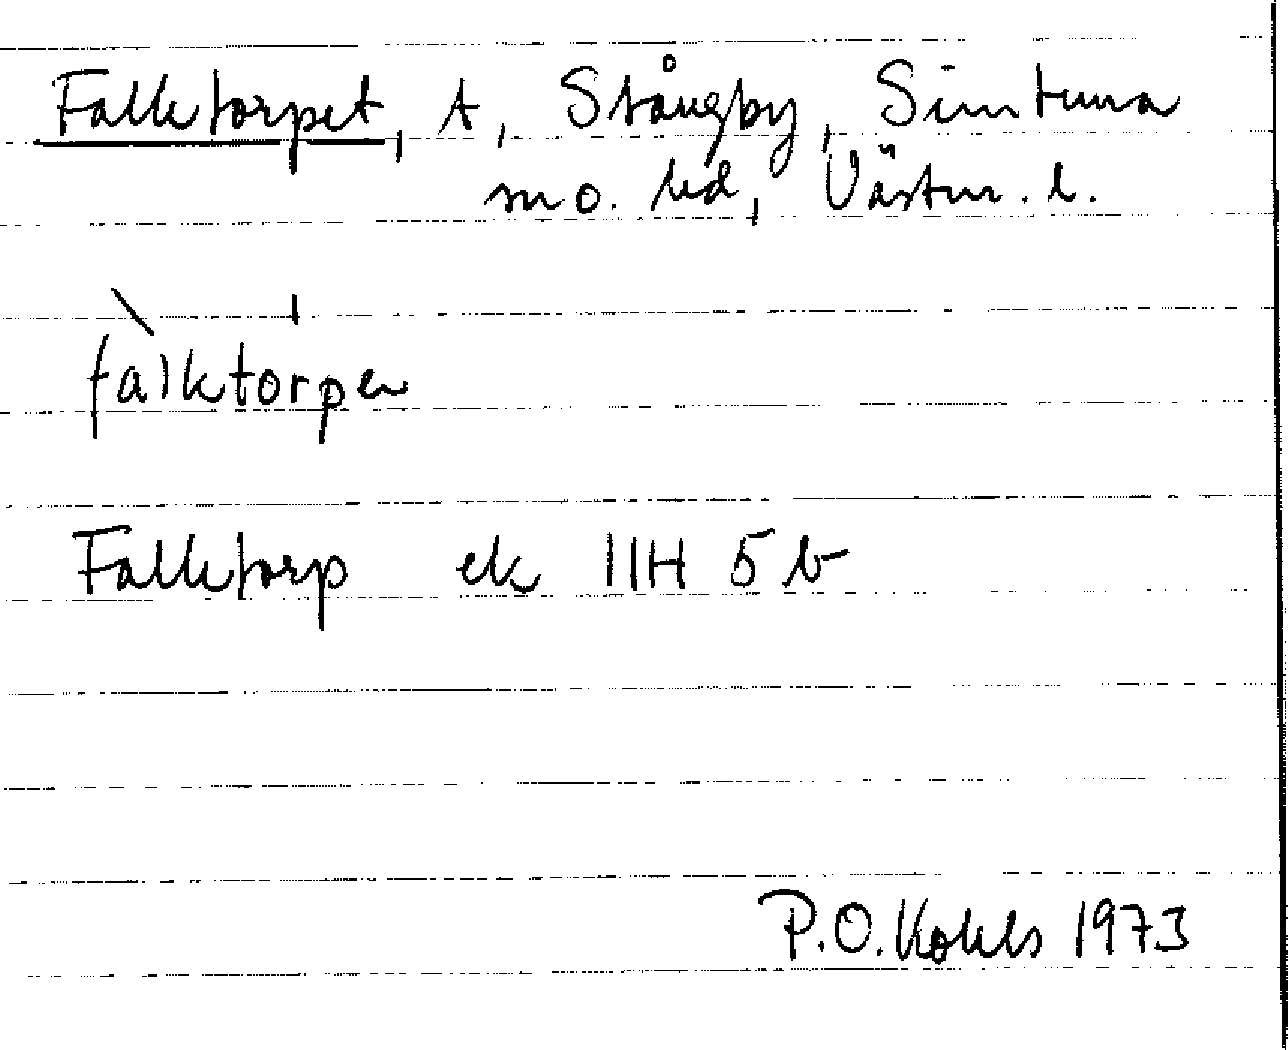 Falktorpet, t, Stångby, Simtuna
sn o. hd, Västm. l.
falktorpen
Falktorp ek 11H 5b
P.O. Kohls 1973